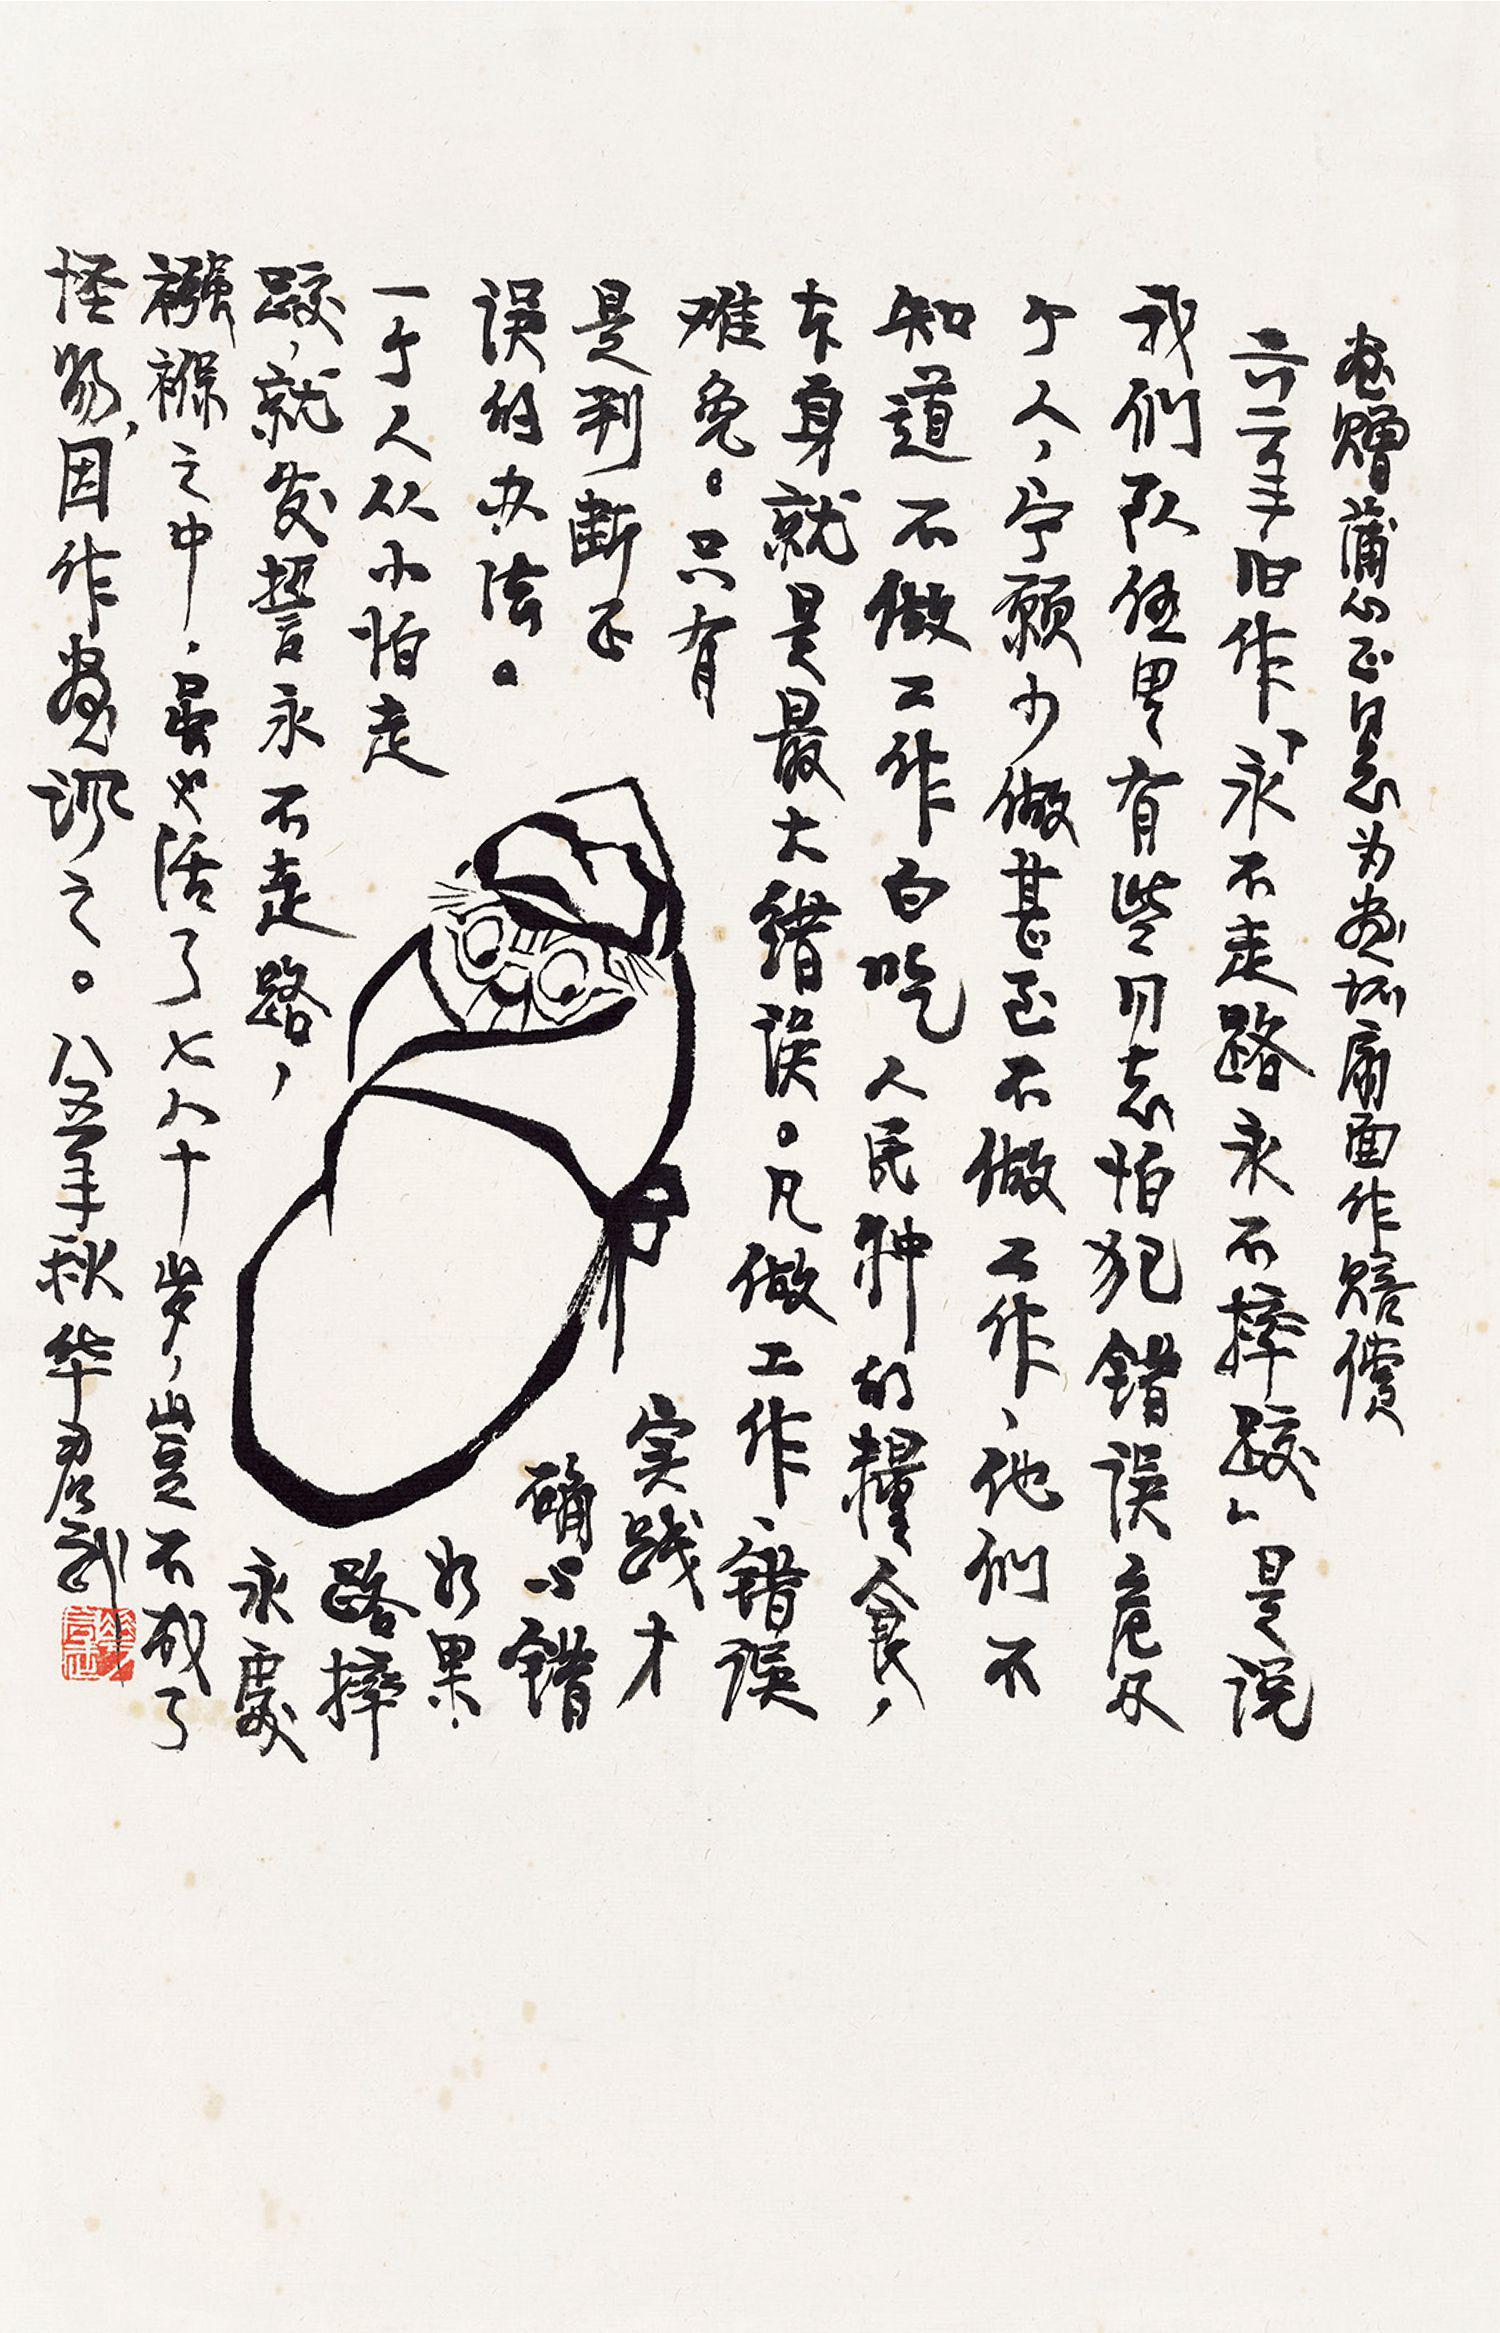 画赠蒲正同志为画坏扇面作赔偿
六二年旧作「永不走路永不摔跤」是说
我们队伍里有些同志怕犯错误危及
个人，宁願少做甚至不做工作，他们不
知道不做工作白吃人民种的糧食，
本身就是最大错误。凡做工作，错误
难免。只有实践才
是判断正确与错
误的办法。如果
一个人从小怕走路摔
跤，就发誓永不走路，永處
襁褓之中，虽也活了七八十岁，岂不成了
怪物，因作画讽之。八五年秋华君武